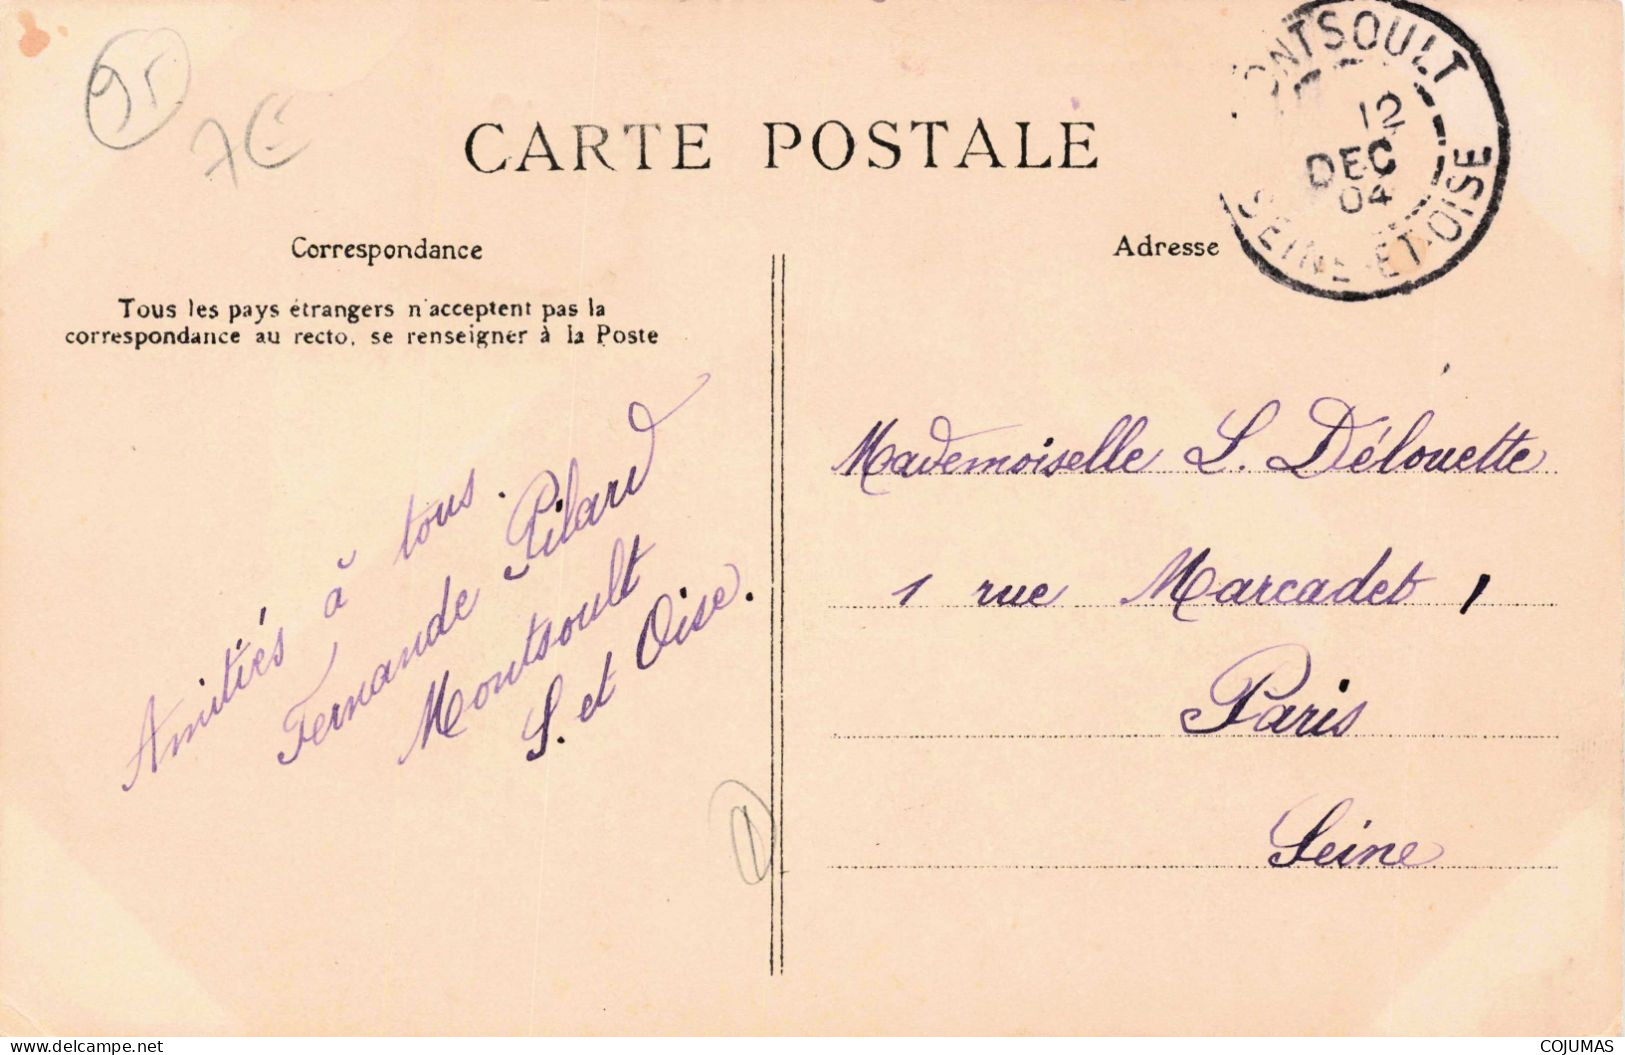 95
7€
CARTE POSTALE
MONTSOULT
12
DEC
04
SEINE-ET-OISE
Correspondance
Tous les pays étrangers n'acceptent pas la
correspondance au recto, se renseigner à la Poste
Adresse
Amitiés à tous.
Fernande Pilard
Montsoult
S. et Oise.
Mademoiselle L. Délouette
1 rue Marcadet 1
Paris
Seine
www.delcampe.net
COJUMAS